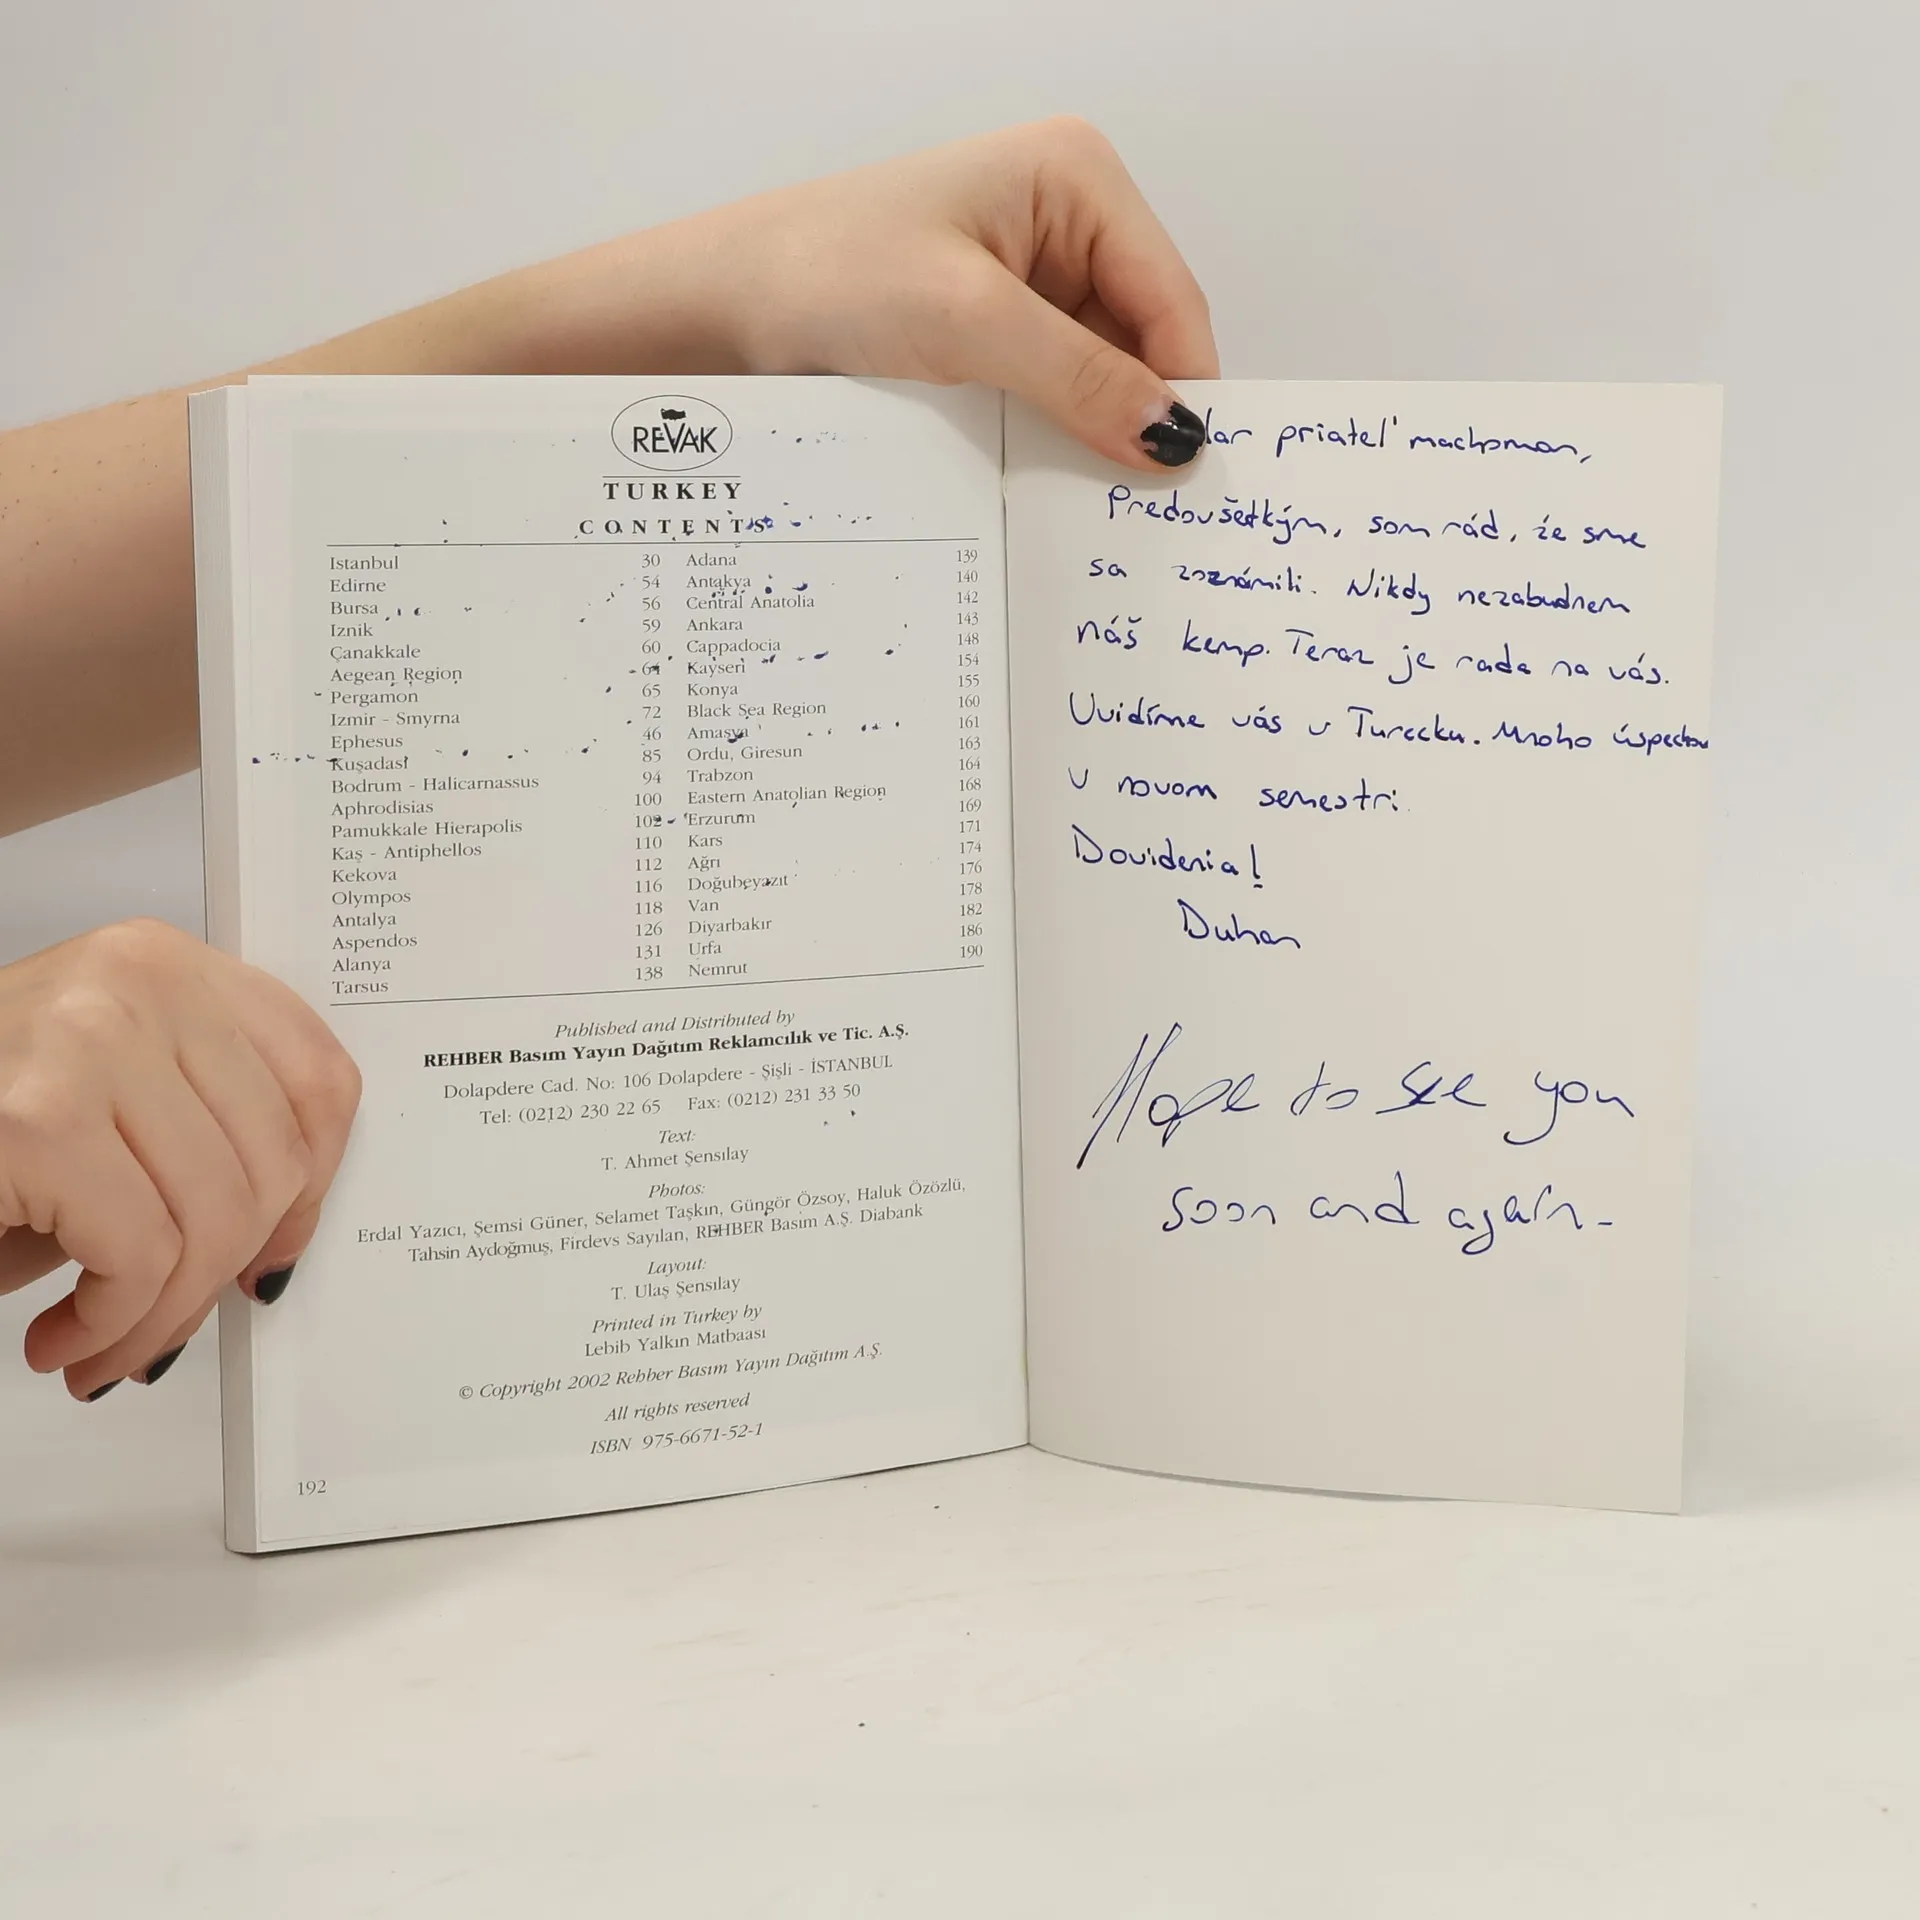 REVAK
TURKEY
CONTENTS
Istanbul 30
Edirne 54
Bursa 56
Iznik 59
Çanakkale 60
Aegean Region 64
Pergamon 65
Izmir - Smyrna 72
Ephesus 46
Kuşadası 85
Bodrum - Halicarnassus 94
Aphrodisias 100
Pamukkale Hierapolis 102
Kaş - Antiphellos 110
Kekova 112
Olympos 116
Antalya 118
Aspendos 126
Alanya 131
Tarsus 138
Adana 139
Antakya 140
Central Anatolia 142
Ankara 143
Cappadocia 148
Kayseri 154
Konya 155
Black Sea Region 160
Amasya 161
Ordu, Giresun 163
Trabzon 164
Eastern Anatolian Region 168
Erzurum 169
Kars 171
Ağrı 174
Doğubeyazıt 176
Van 178
Diyarbakır 182
Urfa 186
Nemrut 190
Published and Distributed by
REHBER Basım Yayın Dağıtım Reklamcılık ve Tic. A.Ş.
Dolapdere Cad. No: 106 Dolapdere - Şişli - İSTANBUL
Tel: (0212) 230 22 65 Fax: (0212) 231 33 50
Text:
T. Ahmet Şensılay
Photos:
Erdal Yazıcı, Şemsi Güner, Selamet Taşkın, Güngör Özsoy, Haluk Özözlü,
Tahsin Aydoğmuş, Firdevs Sayılan, REHBER Basim A.Ş. Diabank
Layout:
T. Ulaş Şensılay
Printed in Turkey by
Lebib Yalkın Matbaası
© Copyright 2002 Rehber Basım Yayın Dağıtım A.Ş.
All rights reserved
ISBN 975-6671-52-1
192
priatel' machoman,
Predovšetkým, som rád, že sme
sa zoznámili. Nikdy nezabudnem
náš kemp. Teraz je rada na vás.
Uvidíme vás v Turecku. Mnoho úspechov
v novom semestri.
Dovidenia!
Duhan
Hope to see you
soon and again-